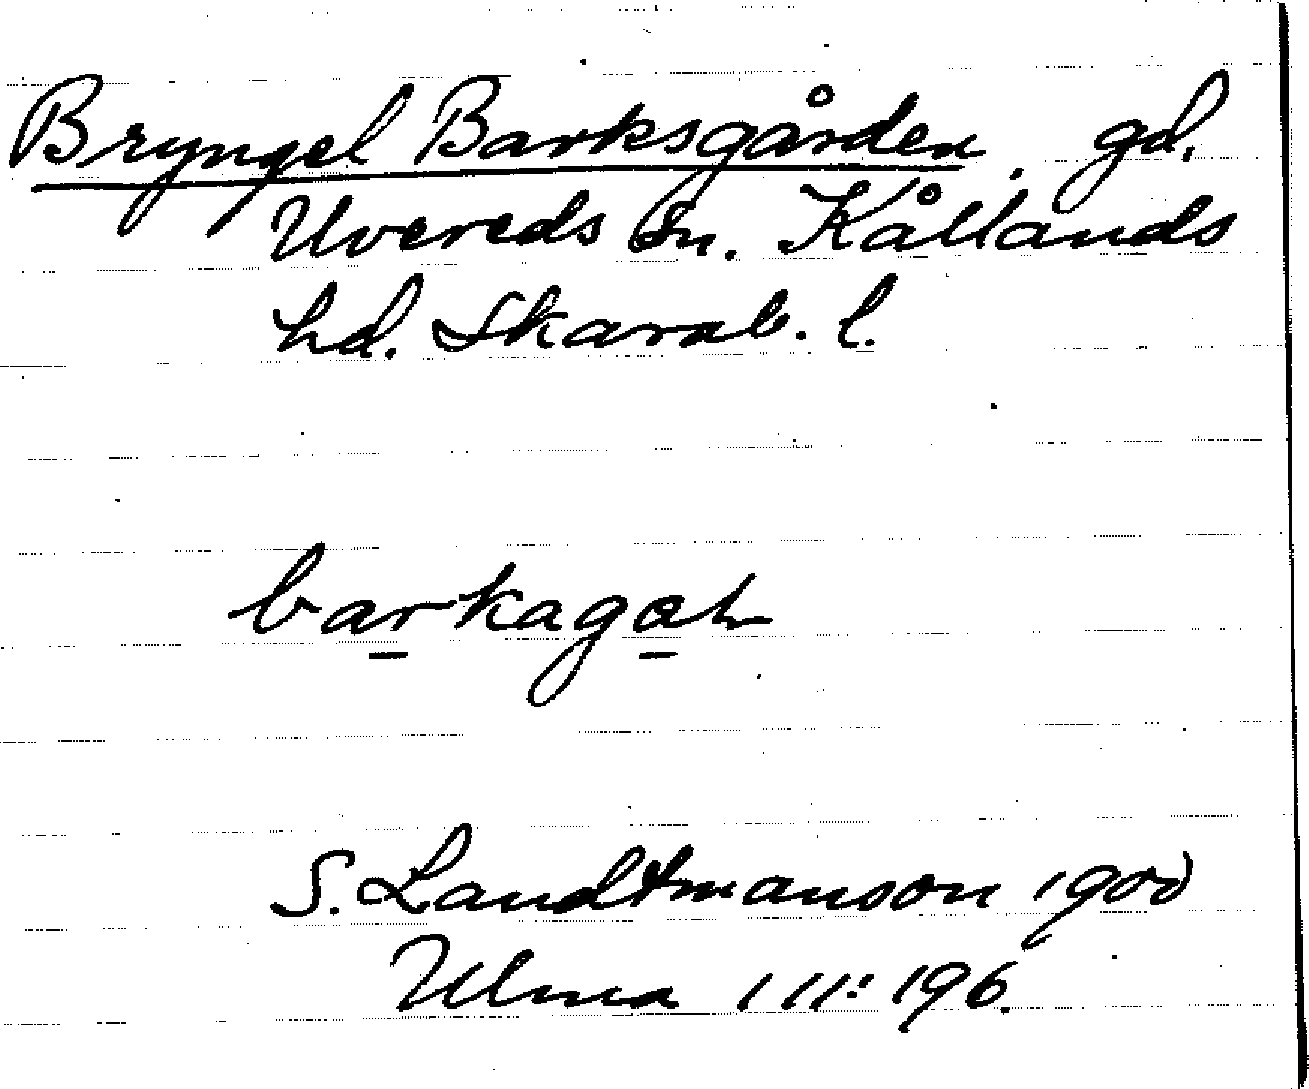 Bryngel Barksgården. gd.
Uvereds sn. Kållands
hd. Skarab. l.
barkagaḷ
S. Landtmanson 1900
Ulma 111:196.